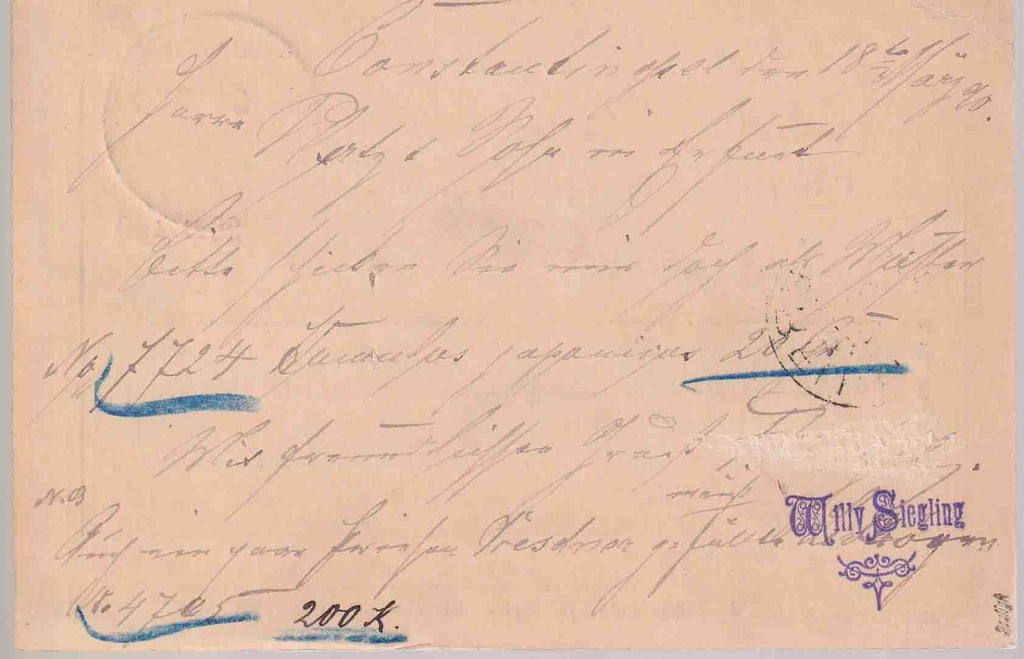 Constantinopel den 18ten März 90.
Herrn Platz & Sohn in Erfurt
Bitte schicken Sie mir doch als Muster
No 7724 Humulus japonicus 20 Gr.
Mit freundlichen Gruß
N.B
weiß
Auch ein paar Prisen Dresdner gefüllte
No. 4705 200 K.
Willy Siegling